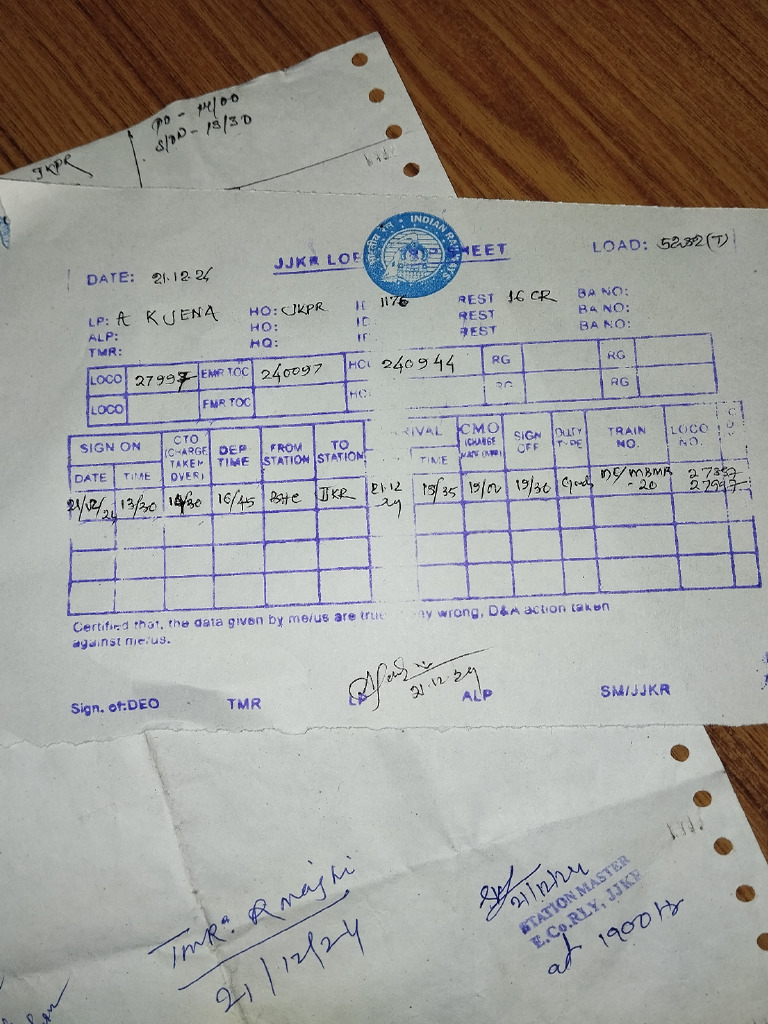 PD - 14/00
S/DN - 13/30
JKPR
भारतीय रेल INDIAN RAILWAYS
JJKR LOB EET
LOAD: 5232(T)
DATE: 21.12.24
LP: A K JENA HQ: JKPR ID 1176 REST 16 CR BA NO:
ALP: HQ: ID REST BA NO:
TMR: HQ: REST BA NO:
LOCO 27997 EMR TOC 240097 HO 240944 RG RG
LOCO EMR TOC HO RG RG
SIGN ON CTO (CHARGE TAKEN OVER) DEP TIME FROM STATION TO STATION RIVAL CMO SIGN OFF DUTY TYPE TRAIN NO. LOCO NO.
DATE TIME TIME
21/12/24 13/30 14/30 16/45 JJKR 21.12 24 19/00 19/30 27997
Certified that, the data given by me/us are true ny wrong, D&A action taken
against me/us.
21.12.24
Sign. of:DEO TMR LP ALP SM/JJKR
TMR: R majhi
21/12/24
21/12/24
STATION MASTER
E.Co.RLY, JJKR
at 1900 hr